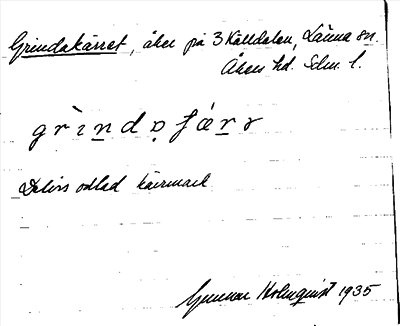 Grindakärret, åker på 3 Källdalen, Länna sn.
Åkers hd. Sdm. l.
grìnda̤ fǽrə
Delvis odlad kärrmark
Gunnar Holmquist 1935